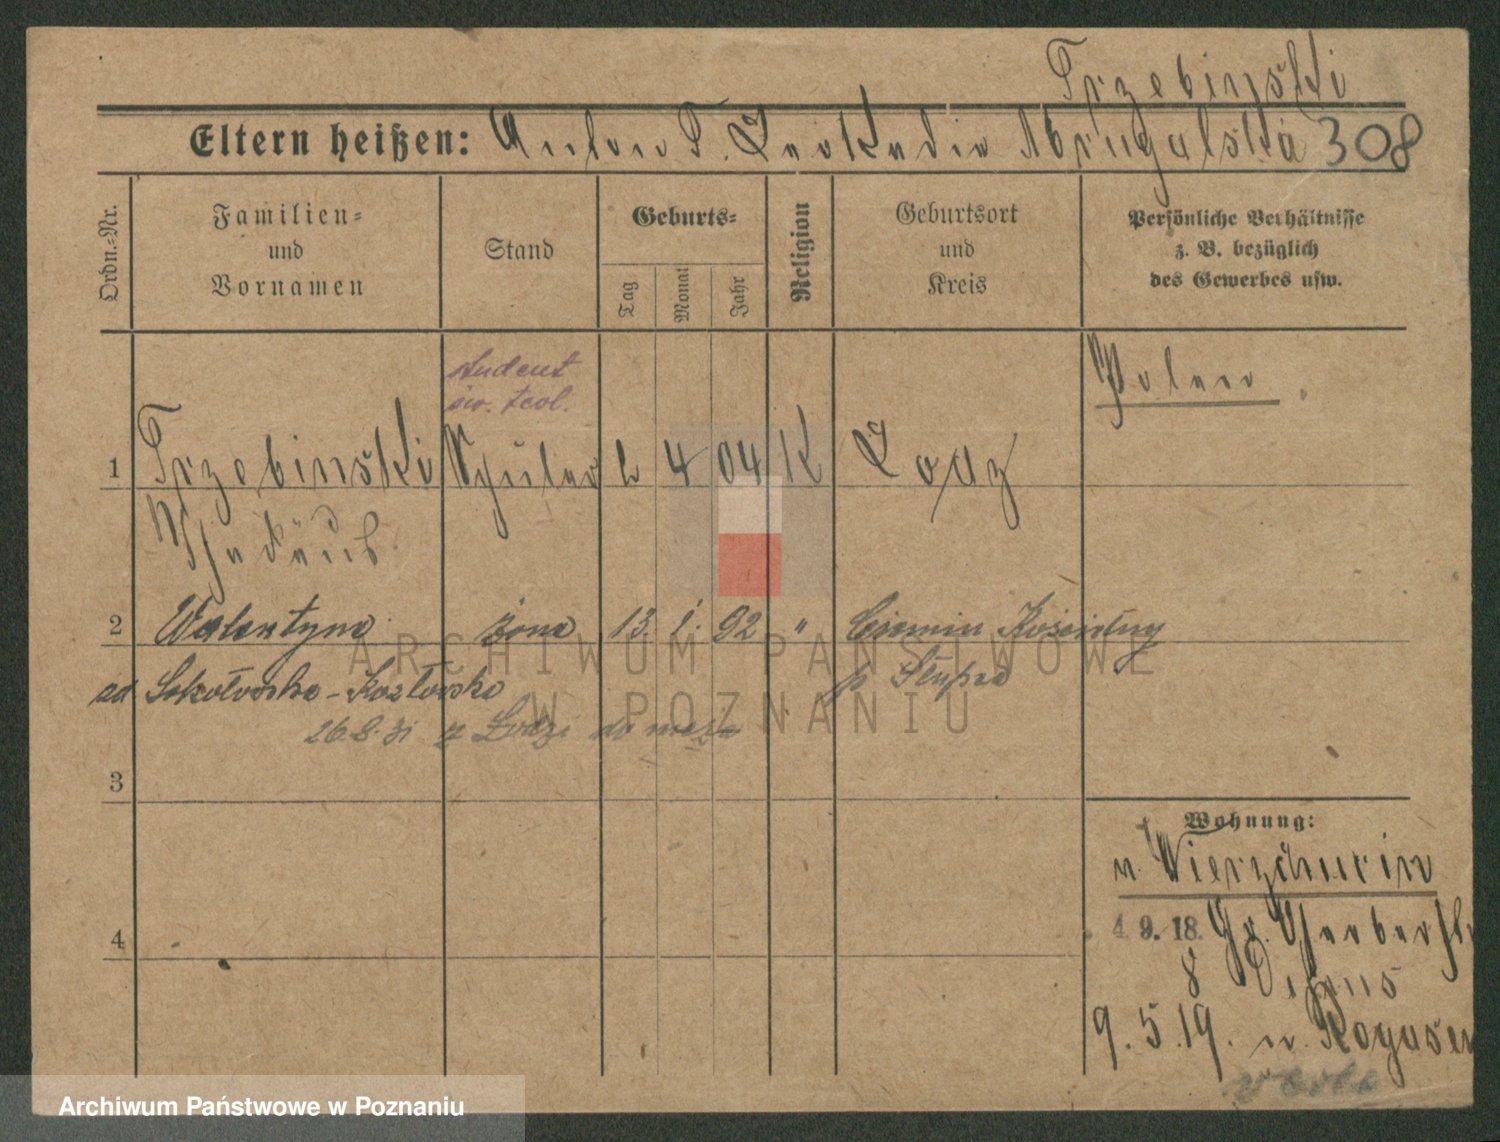 Trzebinski
Eltern heißen: Anton T. Leokadia Mrugalska 308
Ordn.-Nr.
Familien-
und
Vornamen
Stand
Geburts-
Tag
Monat
Jahr
Religion
Geburtsort
und
Kreis
Persönliche Verhältnisse
z. B. bezüglich
des Gewerbes usw.
student
teol.
Polen
1 Trzebinski Schüler 4 04 K Lodz
2 Walentyna żona 13 1. 92 "
zd Sokołowska - Kozłowska
26.8.31 z Łodzi do męża
3
Wohnung:
n. Wierzchucin
4 9. 18. Gr. Gerberstr
4
8
9. 5. 19. n.
ARCHIWUM PAŃSTWOWE
W POZNANIU
Archiwum Państwowe w Poznaniu